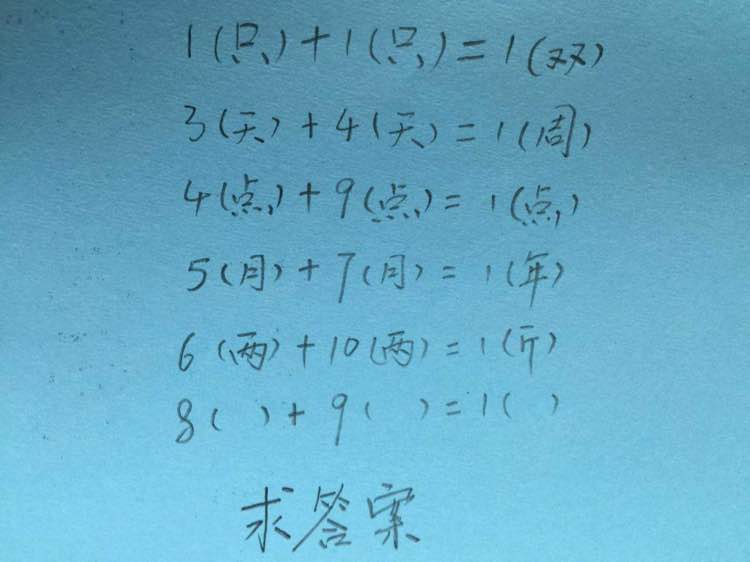 1(只)+1(只)=1(双)
3(天)+4(天)=1(周)
4(点)+9(点)=1(点)
5(月)+7(月)=1(年)
6(两)+10(两)=1(斤)
8( )+9( )=1( )
求答案